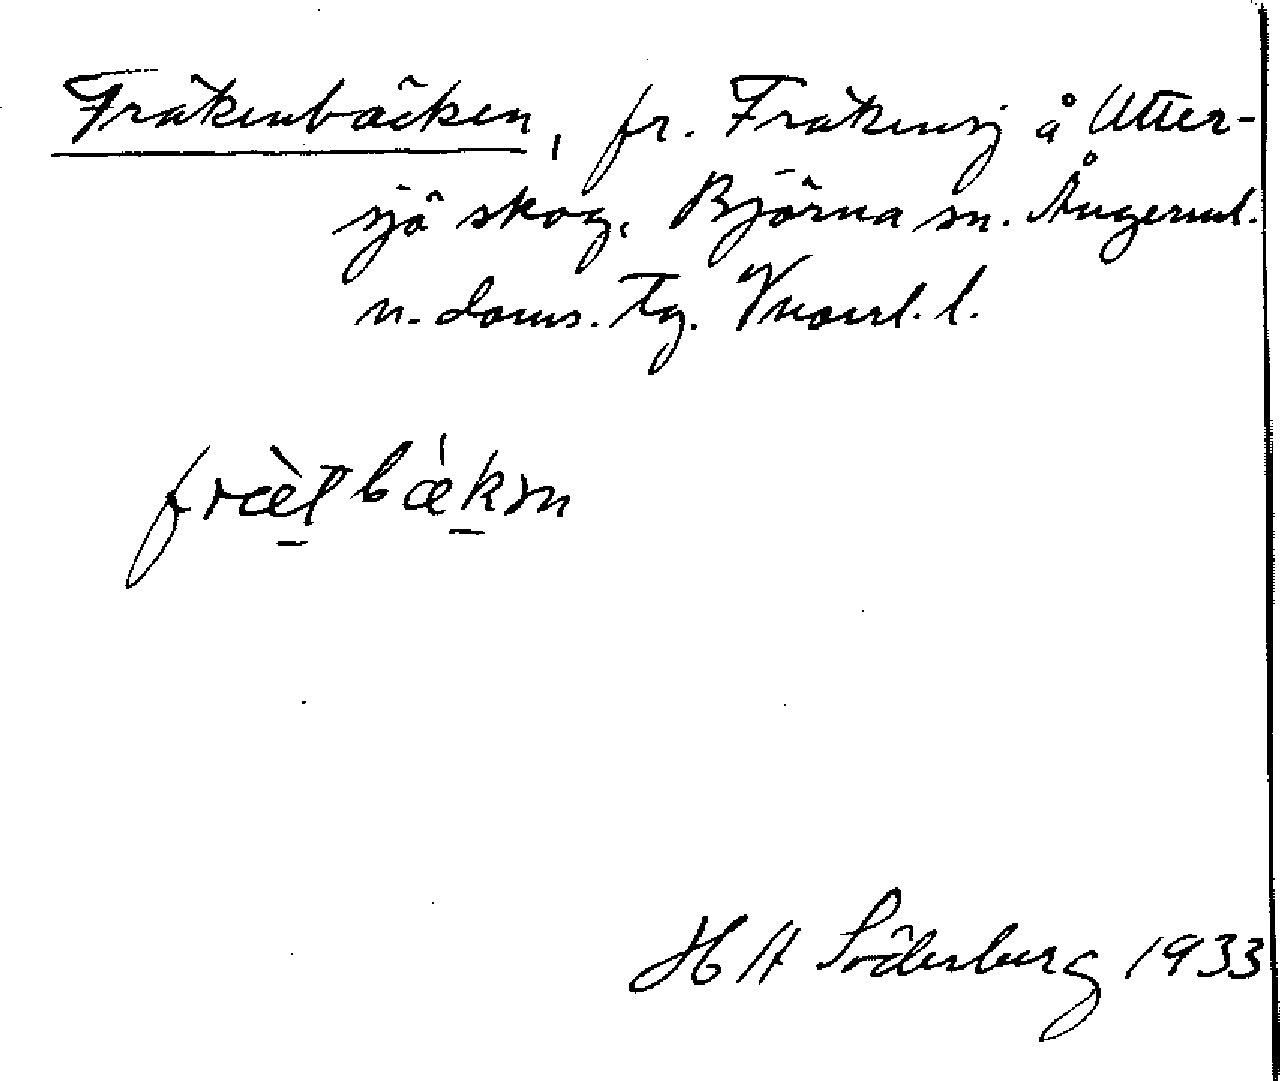 Fräkenbäcken, fr. Fräkensj å Utter-
sjö skog, Björna sn. Ångerml.
n. doms. tg. Vnorrl. l.
fræ̀lbæ̀kɳ
H A Söderberg 1933